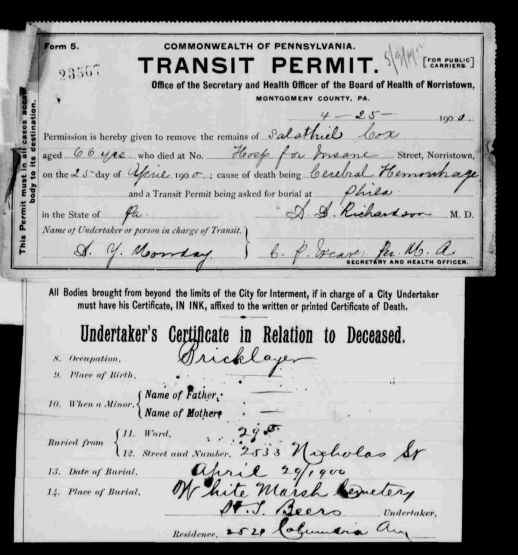 Form 5.
COMMONWEALTH OF PENNSYLVANIA.
TRANSIT PERMIT.
[FOR PUBLIC CARRIERS]
23567
Office of the Secretary and Health Officer of the Board of Health of Norristown,
MONTGOMERY COUNTY, PA.
4-25- 1900.
Permission is hereby given to remove the remains of Salathiel Cox
aged 66 yrs who died at No. Hosp for Insane Street, Norristown,
on the 25 day of April 1900; cause of death being Cerebral Hemorrhage
and a Transit Permit being asked for burial at Phila
in the State of Pa D. D. Richardson M. D.
Name of Undertaker or person in charge of Transit.
SECRETARY AND HEALTH OFFICER.
This Permit must in all cases accompany body to its destination.
All Bodies brought from beyond the limits of the City for Interment, if in charge of a City Undertaker
must have his Certificate, IN INK, affixed to the written or printed Certificate of Death.
Undertaker's Certificate in Relation to Deceased.
8. Occupation, Bricklayer
9. Place of Birth,
10. When a Minor, { Name of Father,
Name of Mother
Buried from { 11. Ward, 29
12. Street and Number, 2533 Nicholas St
13. Date of Burial, April 29/1900
14. Place of Burial, White Marsh Cemetery
Beers Undertaker,
Residence, Columbia Av